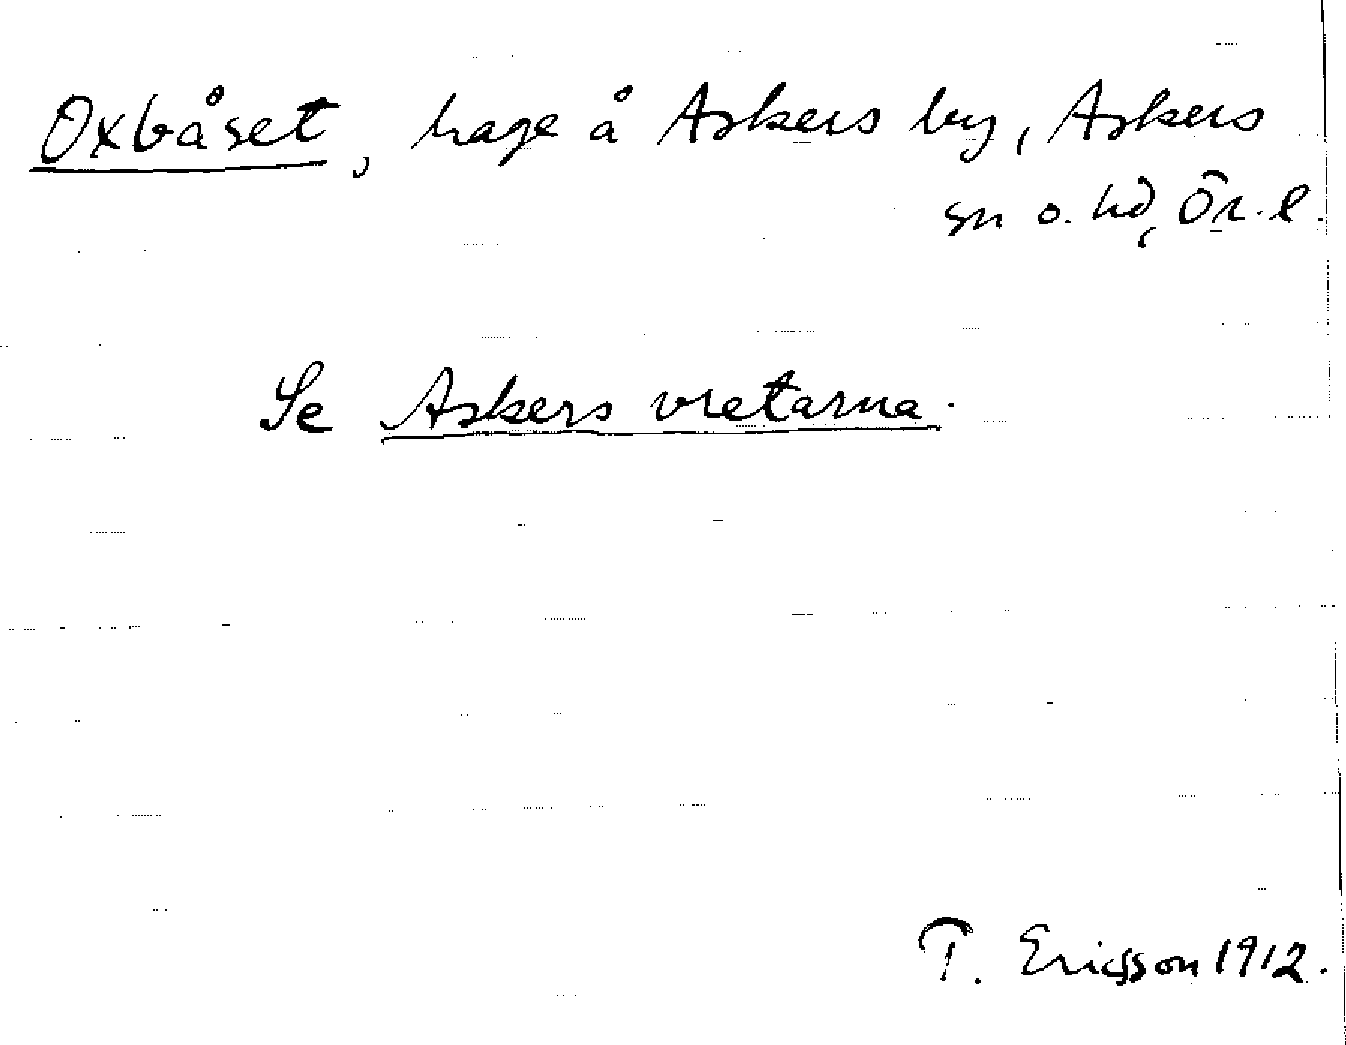 Oxbåset, hage å Askers by, Askers
sn o. hd, Ör. l.
Se Askers vretarna.
T. Ericsson 1912.